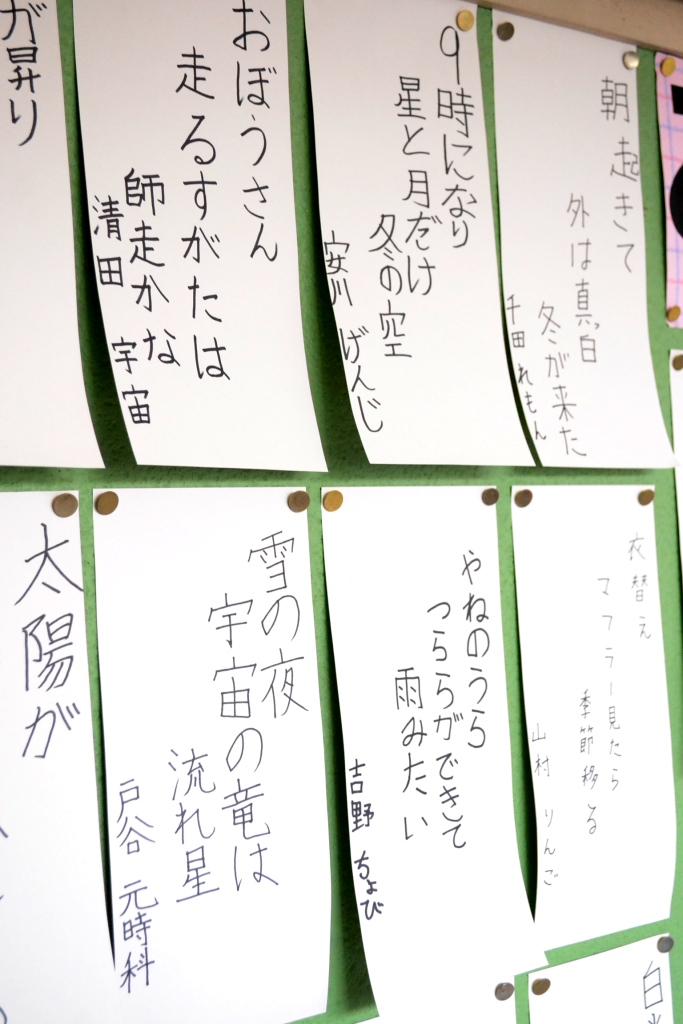 朝起きて
外は真っ白
冬が来た
千田れもん
9時になり
星と月だけ
冬の空
安川 げんじ
おぼうさん
走るすがたは
師走かな
清田 宇宙
が昇り
衣替え
マフラー見たら
季節移る
山村 りんご
やねのうら
つららができて
雨みたい
吉野 ちょび
雪の夜
宇宙の竜は
流れ星
戸谷 元時科
太陽が
白